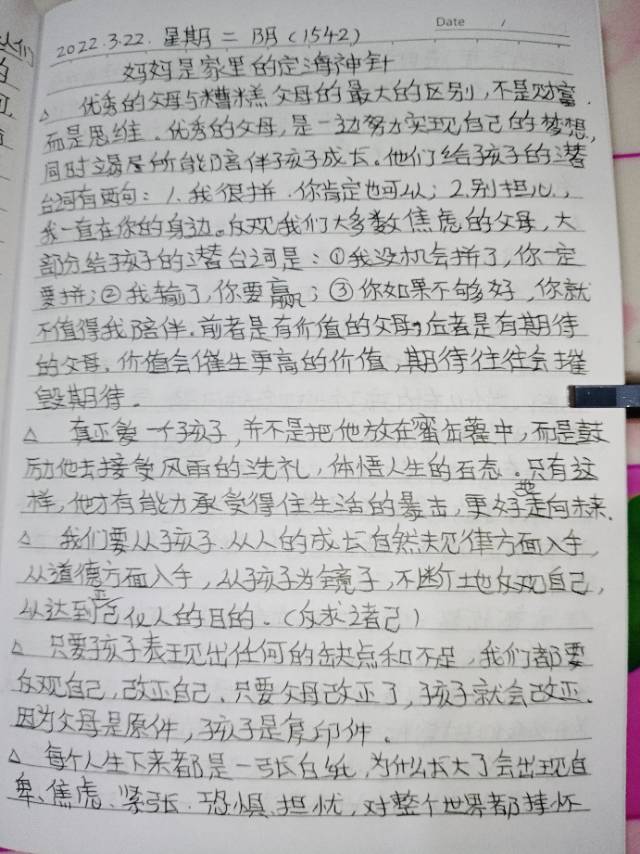 Date /
2022.3.22. 星期二 阴(1542)
妈妈是家里的定海神针
△ 优秀的父母与糟糕父母的最大的区别,不是财富.
而是思维.优秀的父母,是一边努力实现自己的梦想,
同时竭尽所能陪伴孩子成长。他们给孩子的潜
台词有两句:1.我很拼.你肯定也可以;2.别担心,
我一直在你的身边。反观我们大多数焦虑的父母,大
部分给孩子的潜台词是:①我没机会拼了,你一定
要拼;②我输了,你要赢;③你如果不够好,你就
不值得我陪伴.前者是有价值的父母,后者是有期待
的父母.价值会催生更高的价值,期待往往会摧
毁期待.
△ 真正爱一个孩子,并不是把他放在蜜缸罐中,而是鼓
励他去接受风雨的洗礼,体悟人生的百态.只有这
样,他才有能力承受得住生活的暴击,更好地走向未来.
△ 我们要从孩子.从人的成长自然规律方面入手,
从道德方面入手,从孩子为镜子,不断地反观自己,
以达到正己化人的目的.(反求诸己)
△ 只要孩子表现出任何的缺点和不足,我们都要
反观自己,改正自己.只要父母改正了,孩子就会改正.
因为父母是原件,孩子是复印件.
△ 每个人生下来都是一张白纸,为什么长大了会出现自
卑、焦虑、紧张、恐惧、担忧,对整个世界都挂怀